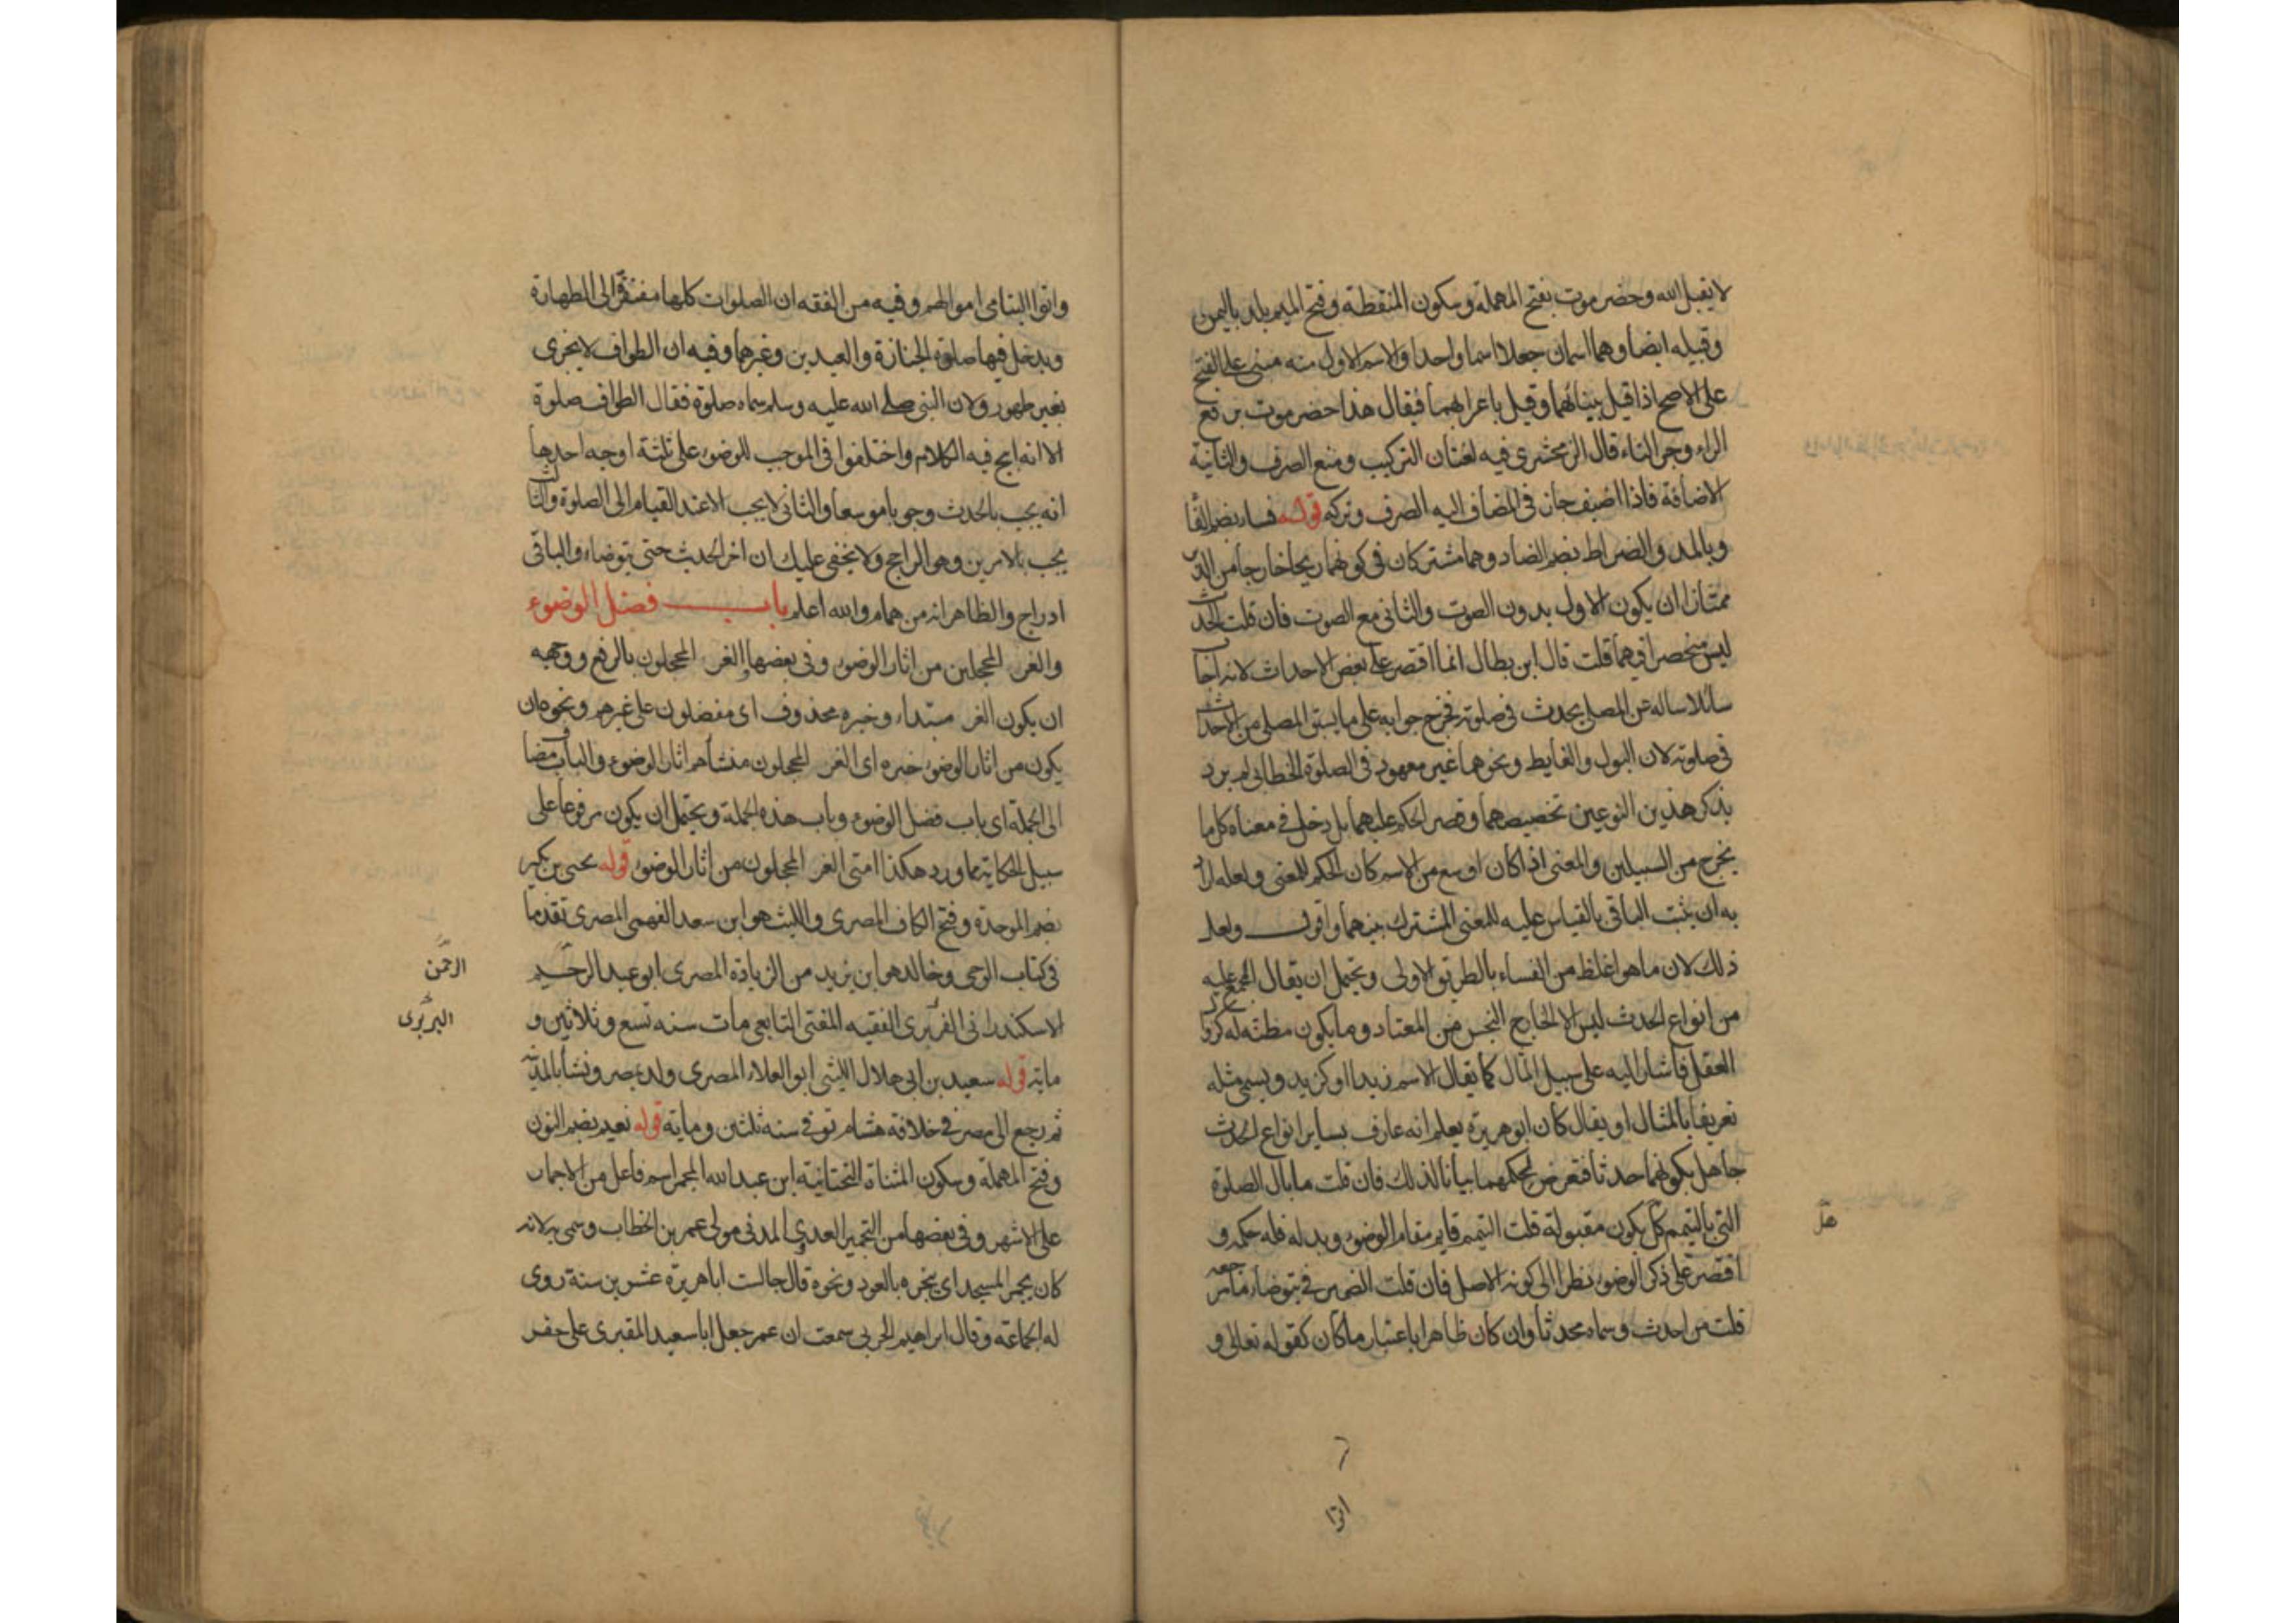 لا يقبل الله وحضرموت بفتح المهملة وسكون المنقطة وفتح الميم بلد باليمن
وقبيله ايضا وهما اسمان جعلا اسما واحدا والاسم الاول منه مبني على الفتح
على الاصح اذا قيل ببنائهما وقيل باعرابهما فيقال هذا حضرموت برفع
الراء وجر التاء قال الزمخشري فيه لغتان التركيب ومنع الصرف والثانية
الاضافة فاذا اضيف جاز في المضاف اليه الصرف وتركه قوله فساء بضم الفا
وبالمد والضراط بضم الضاد وهما مشتركان في كونهما ريحا خارجا من الدبر
ممتازا ان يكون الاول بدون الصوت والثاني مع الصوت فان قلت الحدث
ليس منحصرا فيهما قلت قال ابن بطال انما اقتصر على بعض الاحداث لانه اجاب
سائلا ساله عن المصلي يحدث في صلوته فخرج جوابه على ما يسبق المصلي من الاحداث
في صلوته لان البول والغايط ونحوهما غير معهود في الصلوة الخطابي لم يرد
بذكر هذين النوعين تخصيصهما وقصر الحكم عليهما بل دخل في معناه كل ما
يخرج من السبيلين والمعنى اذا كان اوسع من الاسم كان الحكم للمعنى ولعله اراد
به ان يثبت الباقي بالقياس عليه للمعنى المشترك بينهما واقول ولعل
ذلك لان ما هو اغلظ من الفساء بالطريق الاولى ويحتمل ان يقال المجمع عليه
من انواع الحدث ليس الا الخارج النجس من المعتاد وما يكون مظنه له كزوال
العقل فاشار اليه على سبيل المثال كما يقال الاسم زيد او كزيد ويسمى مثله
تعريفا بالمثال او يقال كان ابو هريرة يعلم انه عارف بساير انواع الحدث
جاهل بكونهما حدثا فتعرض لحكمهما بيانا لذلك فان قلت ما بال الصلوة
التي بالتيمم كل يكون مقبولة قلت التيمم قايم مقام الوضوء وبدله فله حكمه و
هل
اقتصر على ذكر الوضوء نظرا الى كونه الاصل فان قلت الضمير في يتوضأ مرجعه
قلت من احدث وسماه محدثا وان كان ظاهرا باعتبار ما كان كقوله تعالى و
اتوا
واتوا اليتامى اموالهم وفيه من الفقه ان الصلوات كلها مفتقرة الى الطهارة
ويدخل فيها صلوة الجنازة والعيدين وغيرهما وفيه ان الطواف لا يجزى
بغير طهور ولان النبي صلى الله عليه وسلم سماه صلوة فقال الطواف صلوة
الا انه ابيح فيه الكلام واختلفوا في الموجب للوضوء على ثلثة اوجه احدها
انه يجب بالحدث وجوبا موسعا والثاني لا يجب الا عند القيام الى الصلوة والثالث
يجب بالامرين وهو الراجح ولا يخفى عليك ان اخر الحديث حتى يتوضاء والباقي
ادراج والظاهر انه من همام والله اعلم باب فضل الوضوء
والغر المحجلين من اثار الوضوء وفي بعضها الغر المحجلون بالرفع ووجهه
ان يكون الغر مبتداء وخبره محذوف اى مفضلون على غيرهم ونحوه ان
يكون من اثار الوضوء خبره اى الغر المحجلون منشأهم اثار الوضوء والباب مضاف
الى الجملة اى باب فضل الوضوء وباب هذه الجملة ويحتمل ان يكون مرفوعا على
سبيل الحكاية مما ورد هكذا امتى الغر المحجلون من اثار الوضوء قوله يحيى بن بكير
بضم الموحدة وفتح الكاف المصرى والليث هو ابن سعد الفهمى المصرى تقدما
في كتاب الوحى وخالد هو ابن يزيد من الزيادة المصرى ابو عبد الرحيم
الرحمن
الاسكندرانى الفربرى الفقيه المفتى التابعى مات سنه تسع وثلاثين و
البربرى
مايه قوله سعيد بن ابى هلال الليثى ابو العلاء المصرى ولد بمصر ونشأ بالمدينه
ثم رجع الى مصر في خلافة هشام توفي سنه ثلثين ومايه قوله نعيم بضم النون
وفتح المهملة وسكون المثناة التحتانية ابن عبد الله المجمر اسم فاعل من الاجمار
على الاشهر وفي بعضها من التجمير العدوى المدنى مولى عمر بن الخطاب وسمى به لانه
كان يجمر المسجد اى يبخره بالعود ونحوه قال جالست ابا هريرة عشرين سنة روى
له الجماعة وقال ابراهيم الحربى سمعت ان عمر جعل ابا سعيد المقبرى على حفر